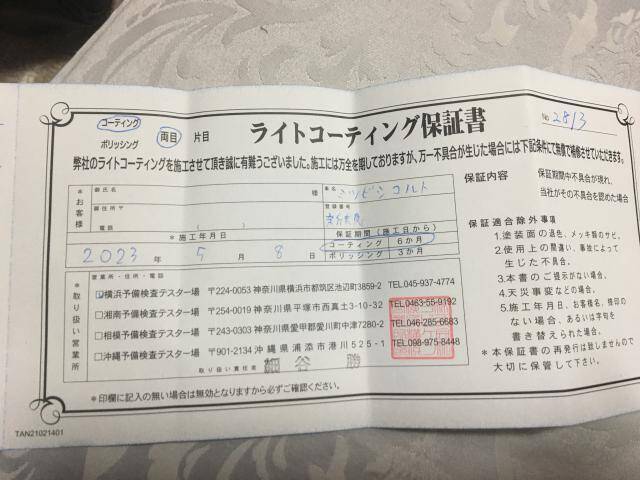 コーティング
ポリッシング
両目 片目
ライトコーティング保証書
No 2813
弊社のライトコーティングを施工させて頂き誠に有難うございました。施工には万全を期しておりますが、万一不具合が生じた場合には下記条件にて無償で補修させていただきます。
*お客様
御氏名
様
御住所〒
電話 ( )
車名
ミツビシ コルト
登録番号
*施工年月日
2023年 5月 8日
保証期間(施工日から)
コーティング 6か月
ポリッシング 3か月
*取り扱い営業所
営業所・住所・電話
横浜予備検査テスター場 〒224-0053 神奈川県横浜市都筑区池辺町3859-2 TEL045-937-4774
□湘南予備検査テスター場 〒254-0019 神奈川県平塚市西真土3-10-32 TEL0463-55-9192
□相模予備検査テスター場 〒243-0303 神奈川県愛甲郡愛川町中津7280-2 TEL046-285-6683
□沖縄予備検査テスター場 〒901-2134 沖縄県浦添市港川525-1 TEL098-975-8448
取り扱い責任者 細谷 勝
*印欄に記入の無い場合は無効となりますから必ずご確認ください。
保証内容 保証期間中不具合が現れ、
当社がその不具合を認めた場合
保証適合除外事項
1.塗装面の退色、メッキ類のサビ。
2.使用上の間違い、事故によって
生じた不具合。
3.本書のご提示がない場合。
4.天災事変などの場合。
5.施工年月日、お客様名、捺印の
ない場合、あるいは字句を
書き替えられた場合。
*本保証書の再発行は致しませんので
大切に保管して下さい。
TAN21021401